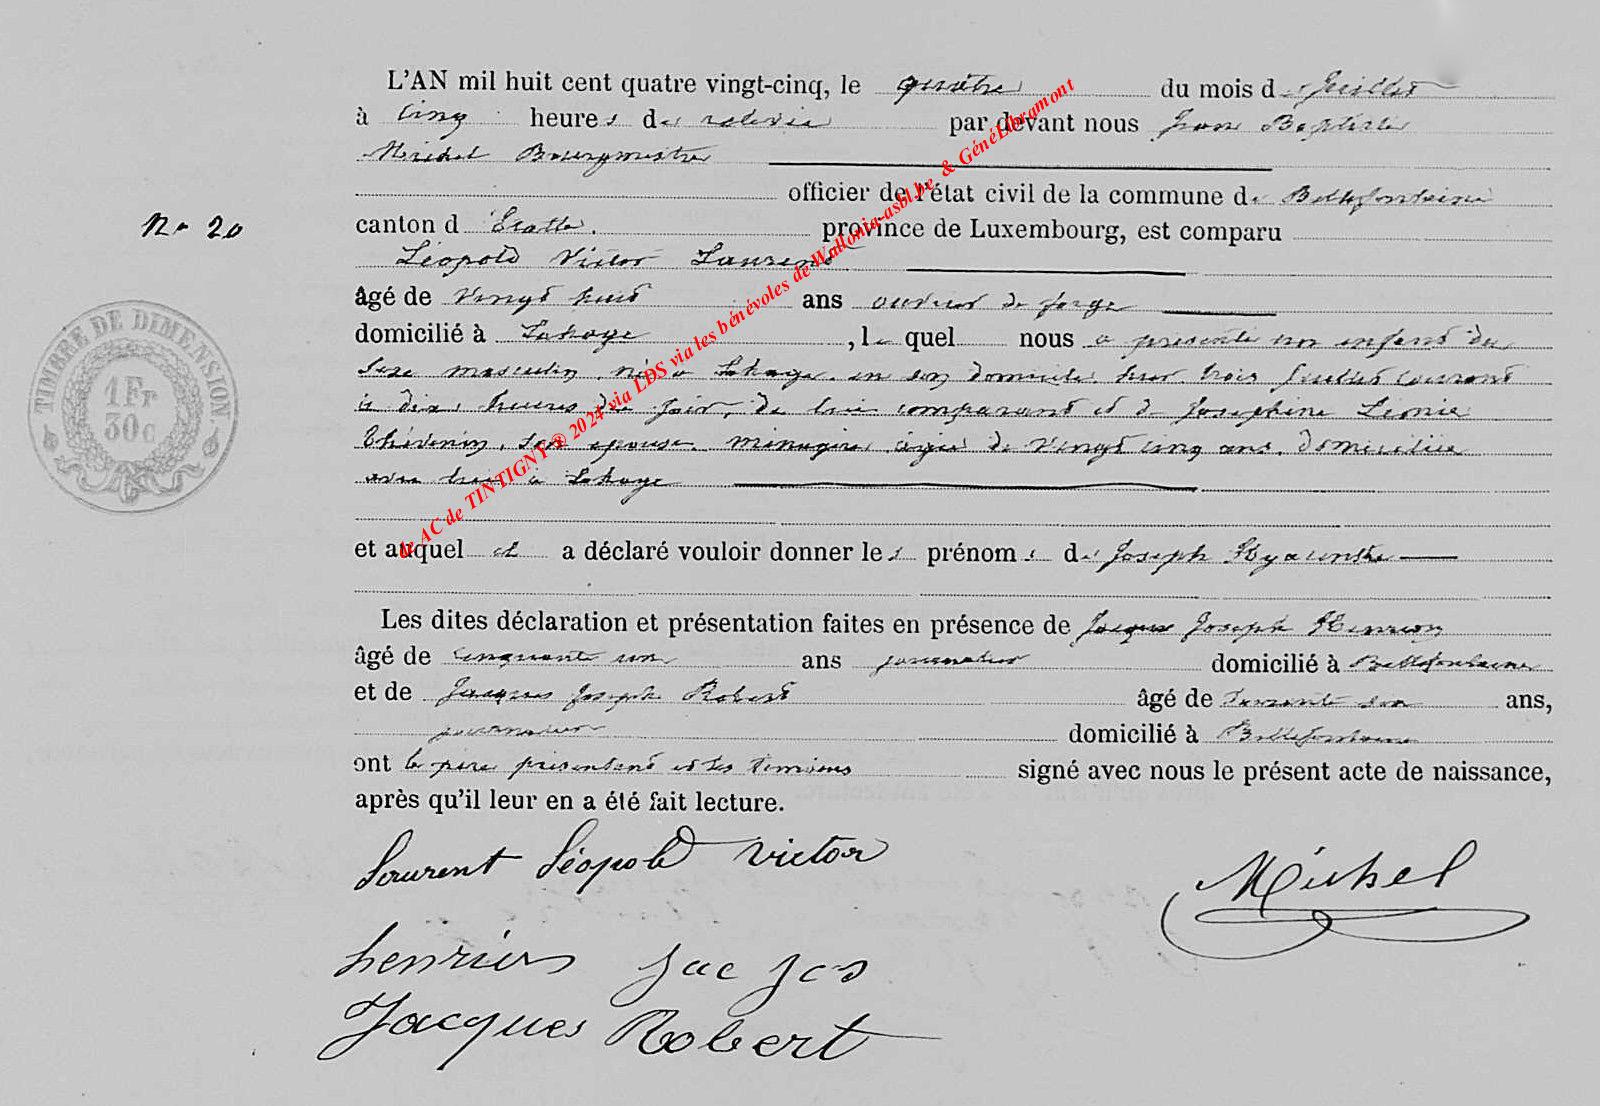 L'AN mil huit cent quatre vingt-cinq, le quatre du mois de Juillet
à cinq heures de relevée par devant nous Jean Baptiste
Michel Bourgmestre
officier de l'état civil de la commune de Bellefontaine
N° 20
canton d'Etalle. province de Luxembourg, est comparu
Léopold Victor Laurent
âgé de vingt huit ans ouvrier de forge
domicilié à Lahage, lequel nous a présenté un enfant du
sexe masculin, né à Lahage, en son domicile, hier trois Juillet courant
à dix heures du soir, de lui comparant et de Joséphine Léonie
Thévenin, son épouse, ménagère, âgée de vingt cinq ans, domiciliée
avec lui à Lahage
et auquel il a déclaré vouloir donner les prénoms de Joseph Hyacinthe
Les dites déclaration et présentation faites en présence de Jacques Joseph Henrion
âgé de cinquante un ans journalier domicilié à Bellefontaine
et de Jacques Joseph Robert âgé de ans,
journalier domicilié à Bellefontaine
ont le père présentant et les témoins signé avec nous le présent acte de naissance,
après qu'il leur en a été fait lecture.
Laurent Léopold Victor
Michel
henrion Jac Jos
Jacques Robert
TIMBRE DE DIMENSION.
1 Fr
30 c
de AC de TINTIGNY ® 2024 via LDS via les bénévoles de Wallonia-asbl.be & GénéLibramont